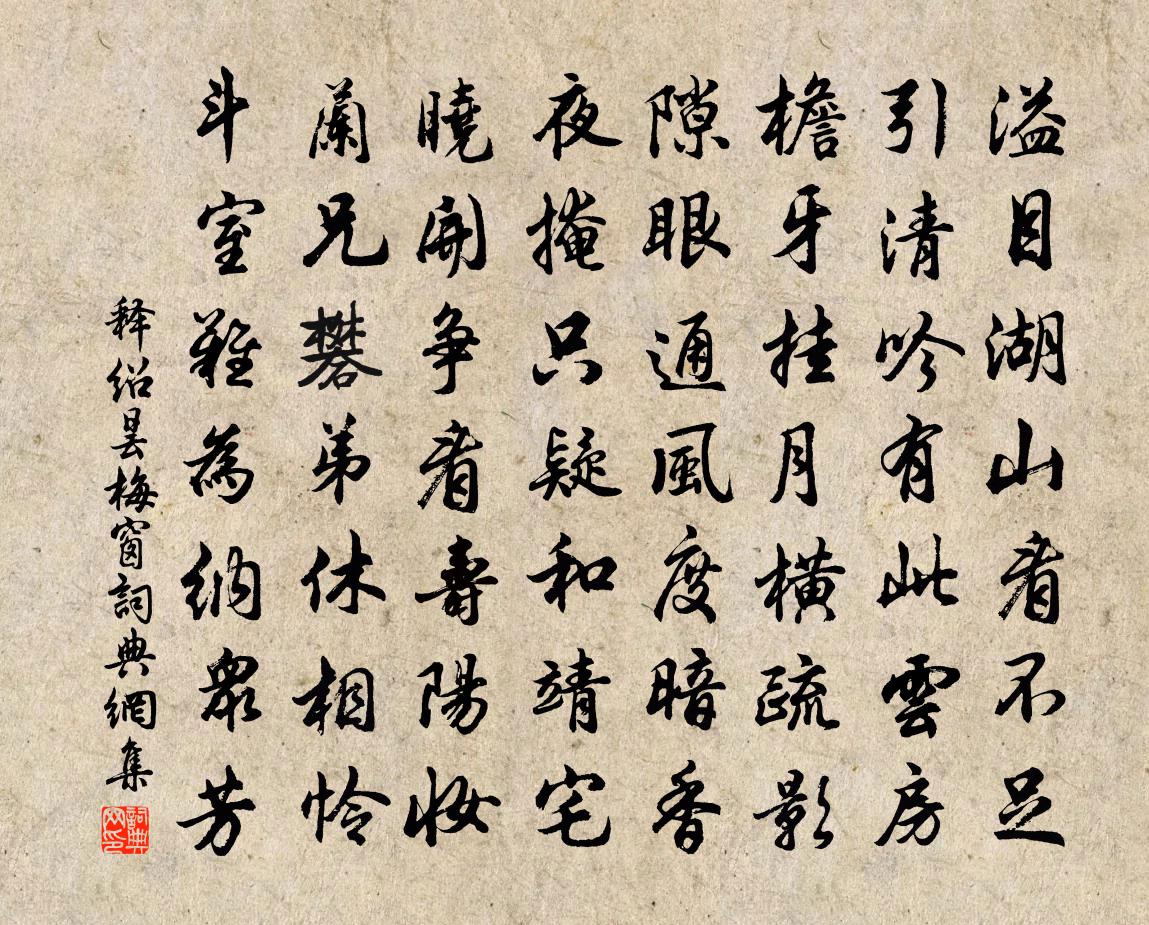 溢目湖山看不足
引清吟有此雲房
檐牙挂月橫疏影
隙眼通風度暗香
夜掩只疑和靖宅
曉開爭看壽陽妝
蘭兄礬弟休相怜
斗室難為納眾芳
释绍昙梅窗詞典網集
詞典網印